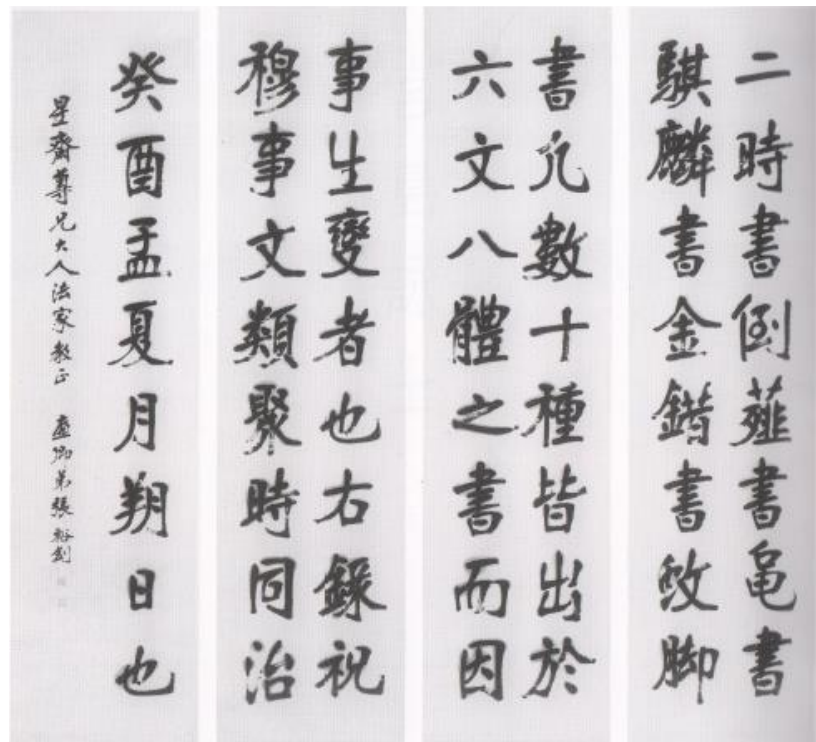 二時書倒薤書龟書
騏麟書金鍇書蚊脚
書凡數十種皆出於
六文八體之書而因
事生變者也右錄祝
穆事文類聚時同治
癸酉孟夏月朔日也
星齋尊兄大人法家教正 廉卿弟張裕釗